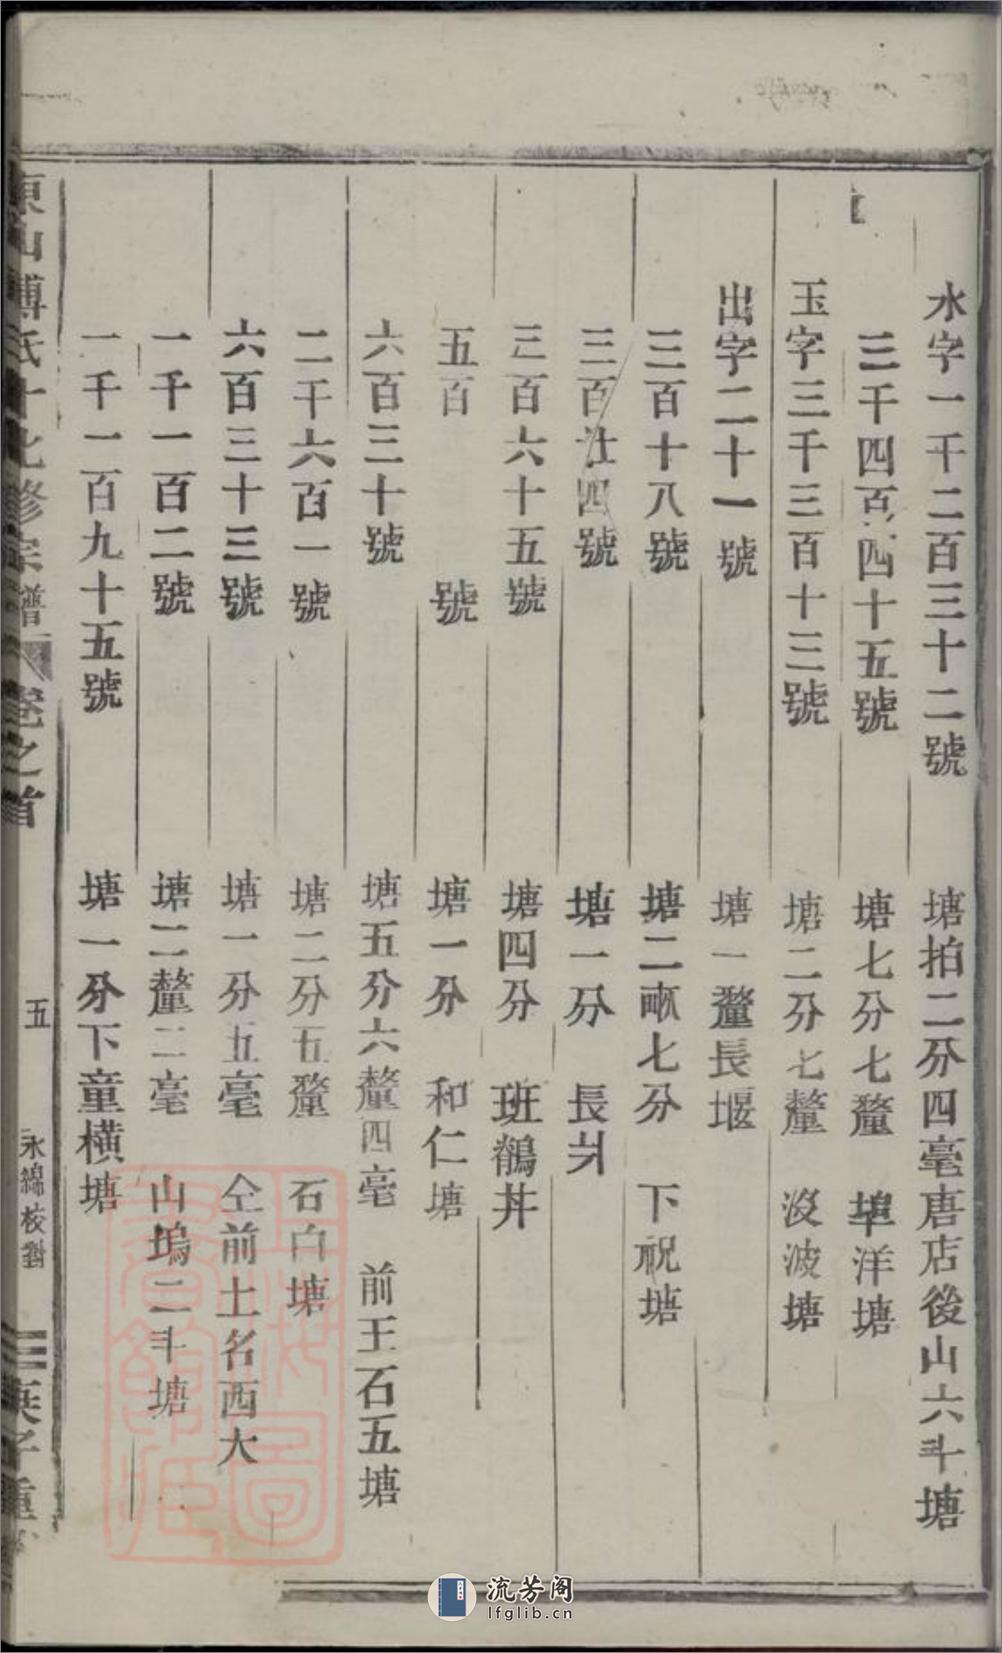 水字一千二百三十二號 塘拍二分四毫唐店後山六斗塘
三千四百四十五號 塘七分七釐 埠洋塘
玉字三千三百十三號 塘二分七釐 沒波塘
出字二十一號 塘一釐長堰
三百十八號 塘二畝七分 下祝塘
三百廿四號 塘一分 長
三百六十五號 塘四分 班鶺丼
五百 號 塘一分 和仁塘
六百三十號 塘五分六釐四毫 前王石五塘
二千六百一號 塘二分五釐 石白塘
六百三十三號 塘一分五毫 仝前土名西大
一千一百二號 塘二釐二毫 山塢二斗塘
一千一百九十五號 塘一分下童橫塘
東山傅氏十七修宗譜 卷之首 五 永綿校對
上海圖書館藏
流芳阁
lfglib.cn